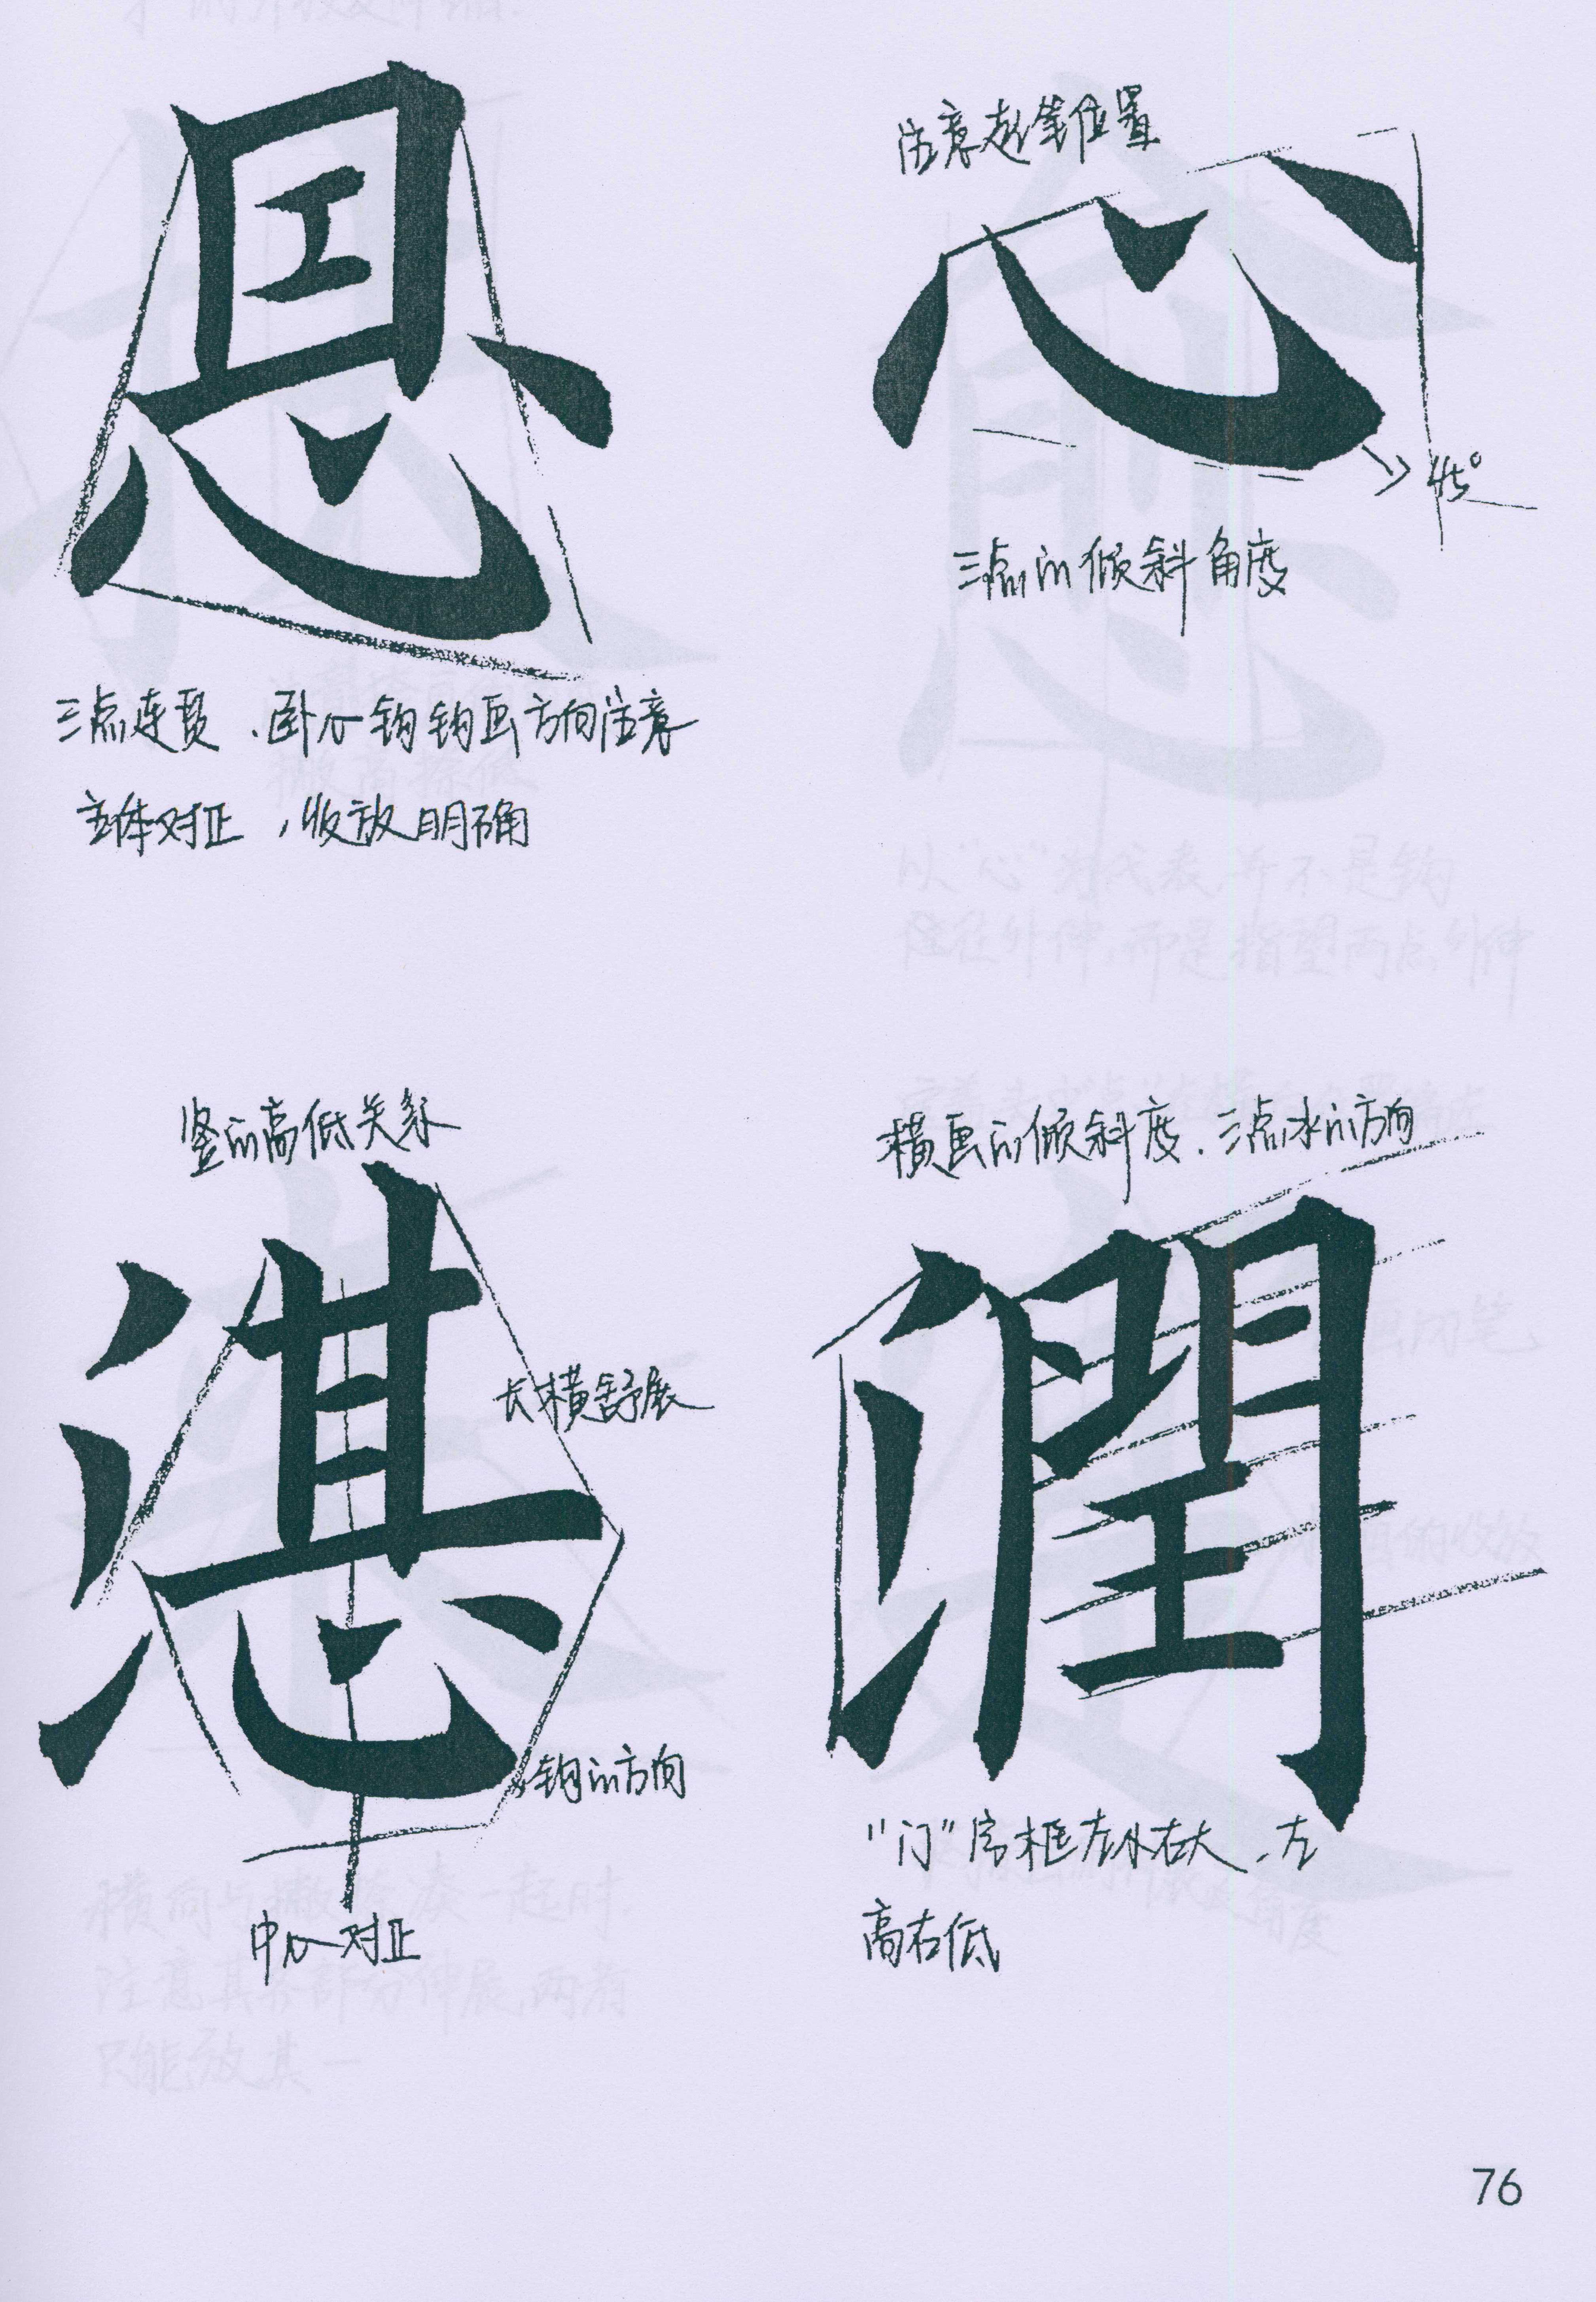 恩
三点连贯、卧心钩钩画方向注意
主体对正，收放明确
注意起笔位置
心
45°
三点的倾斜角度
竖的高低关系
湛
长横舒展
钩的方向
中心对正
横画的倾斜度、三点水的方向
潤
“门”字框左小右大、左
高右低
76